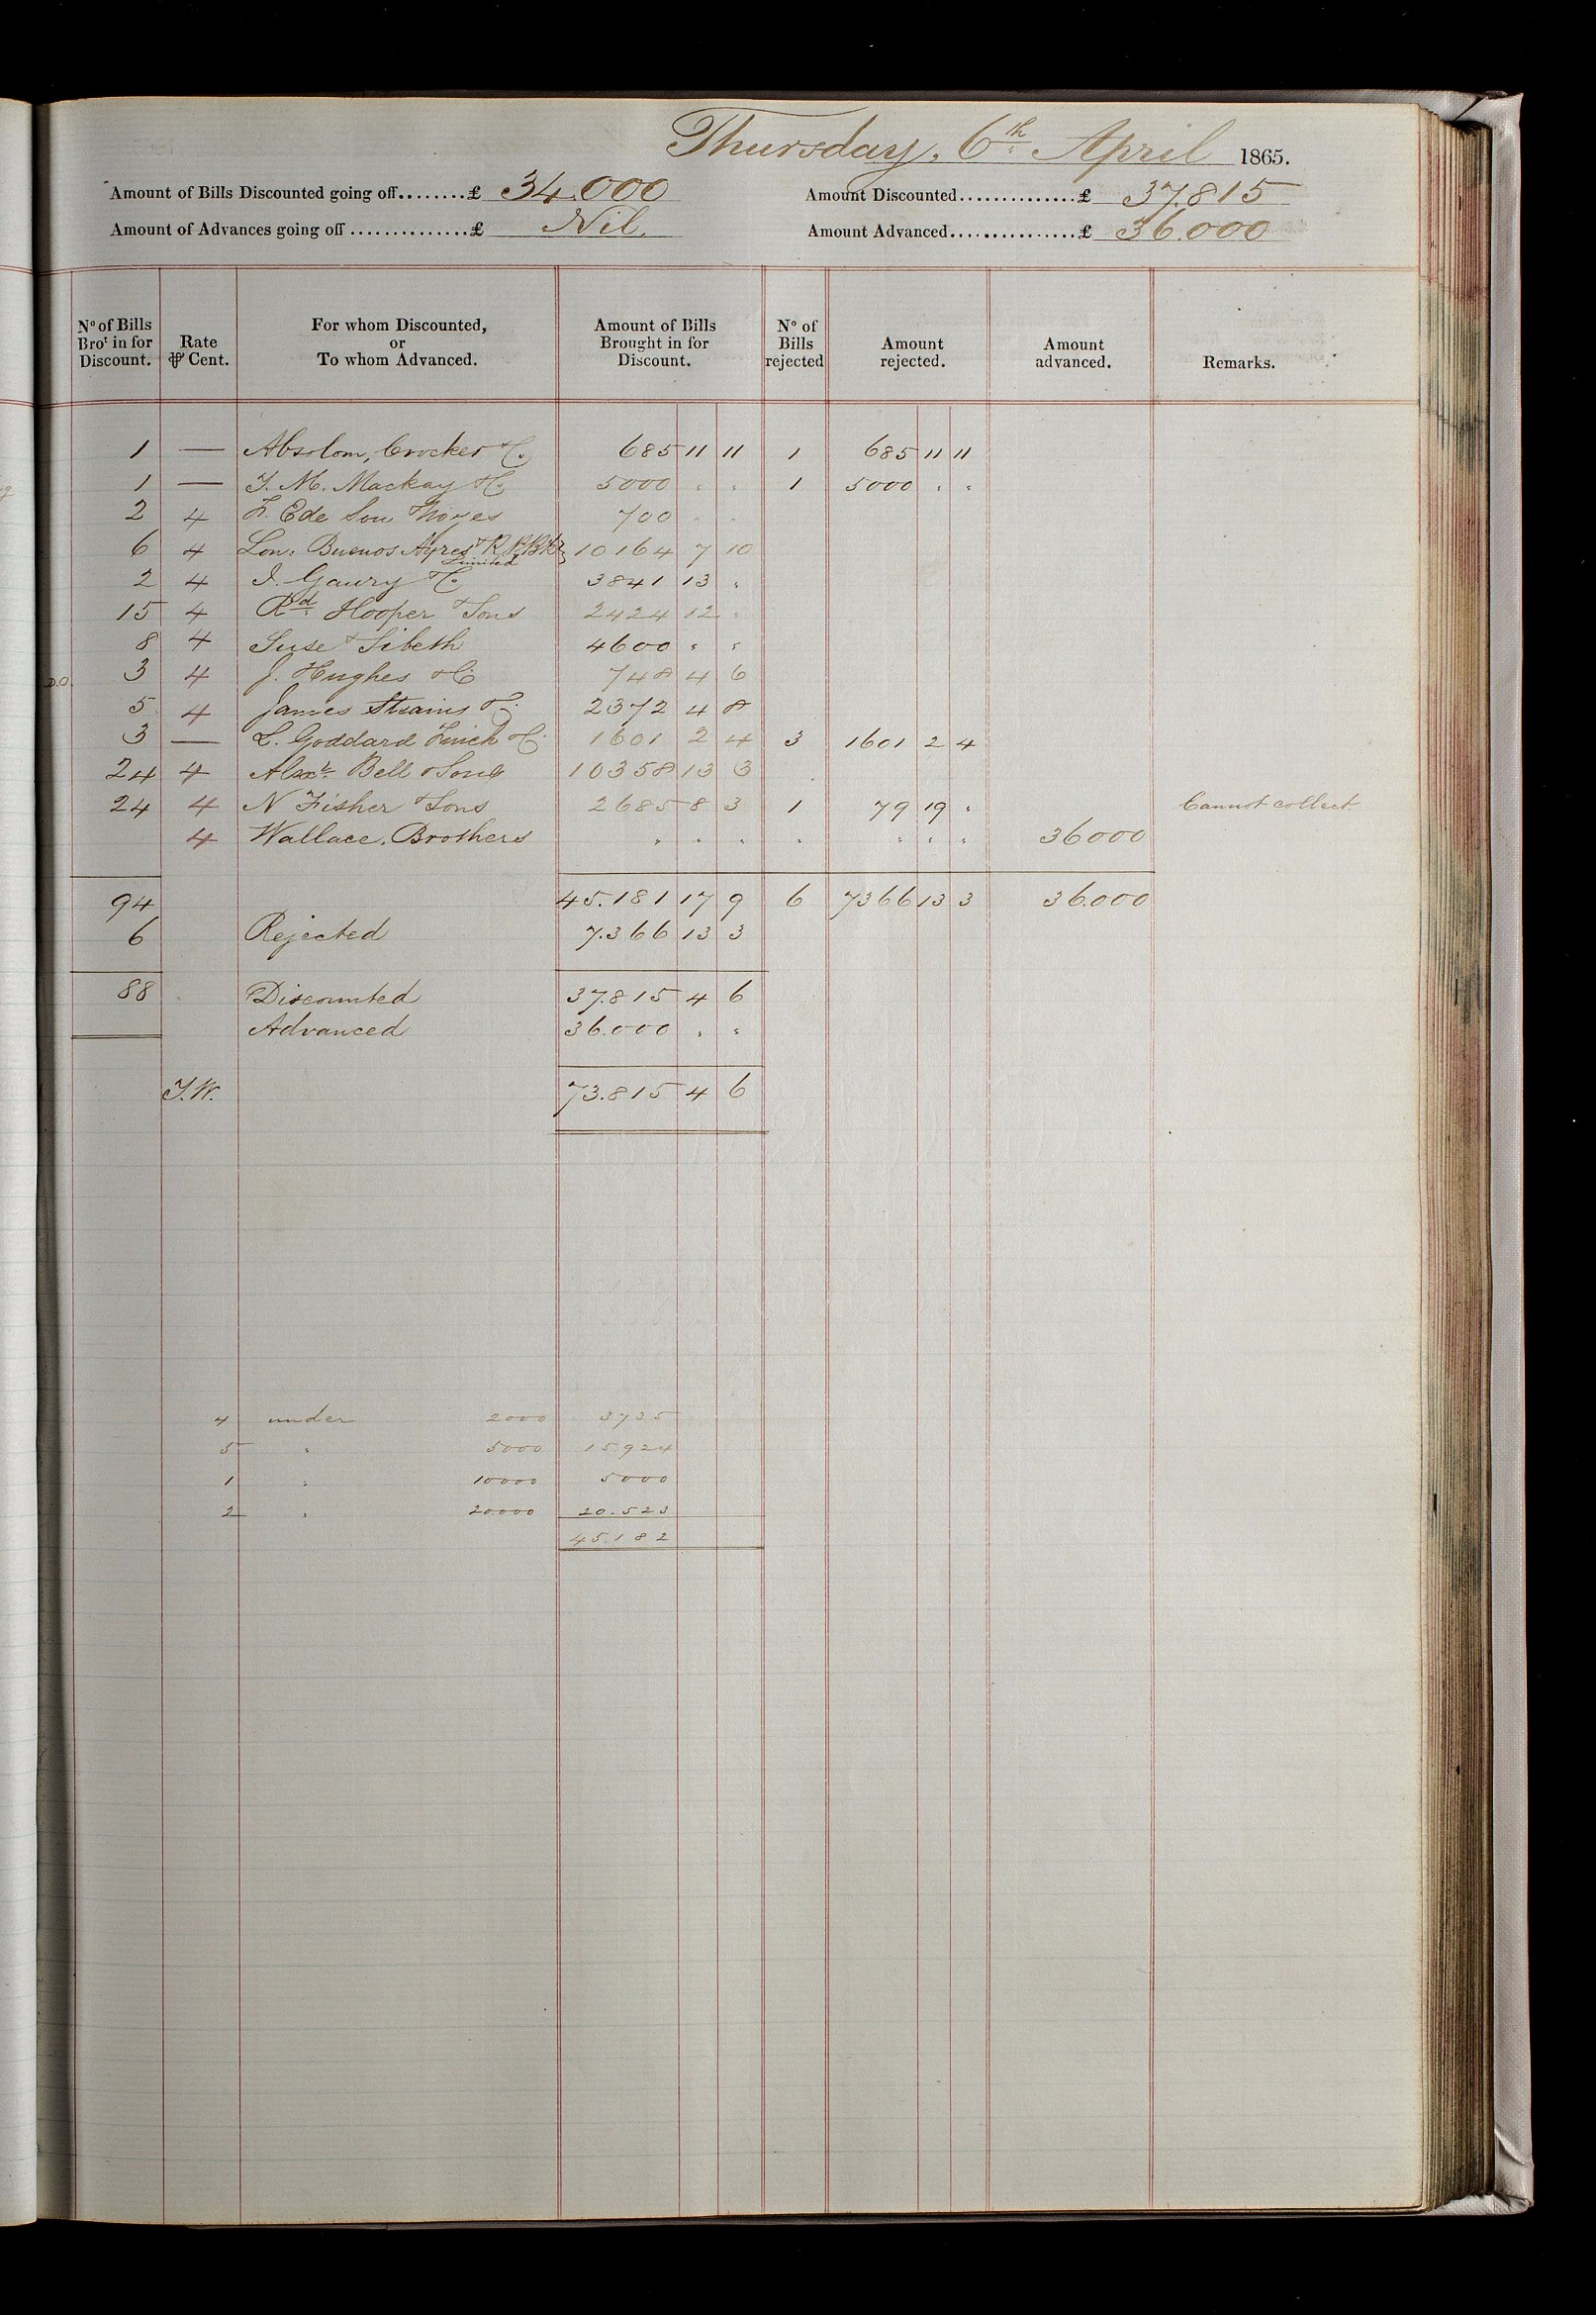 Thursday, 6th April 1865.
Amount of Bills Discounted going off........£ 34.000 Amount Discounted..............£ 37.815
Amount of Advances going off..............£ Nil. Amount Advanced................£ 36.000
No of Bills Brot in for Discount. Rate ⅌ Cent. For whom Discounted, or To whom Advanced. Amount of Bills Brought in for Discount. No of Bills rejected Amount rejected. Amount advanced. Remarks.
1 — Absolom, Crocker & Co 685 11 11 1 685 11 11
1 — T. M. Mackay & Co 5000 " " 1 5000 " "
2 4 F. Ede Son & Noyes 700 " "
6 4 Lon: Buenos Ayres & R. P. Bk Limited 10164 7 10
2 4 Gaury & Co 3841 13 "
15 4 Rd Hooper & Sons 2424 12 "
8 4 Suse & Sibeth 4600 " "
D.O. 3 4 J. Hughes & Co 748 4 6
5 4 James Strains & Co 2372 4 8
3 — L. Goddard Finch & Co 1601 2 4 3 1601 2 4
24 4 Alexr Bell & Sons 10358 13 3
24 4 N Fisher & Sons 2685 8 3 1 79 19 " Cannot collect.
4 Wallace, Brothers " " " " " " " 36000
94 45.181 17 9 6 7366 13 3 36.000
6 Rejected 7.366 13 3
88 Discounted 37.815 4 6
Advanced 36.000 " "
T.W. 73.815 4 6
4 under 2000 3735
5 " 5000 15.924
1 " 10000 5000
2 " 20.000 20.523
45.182